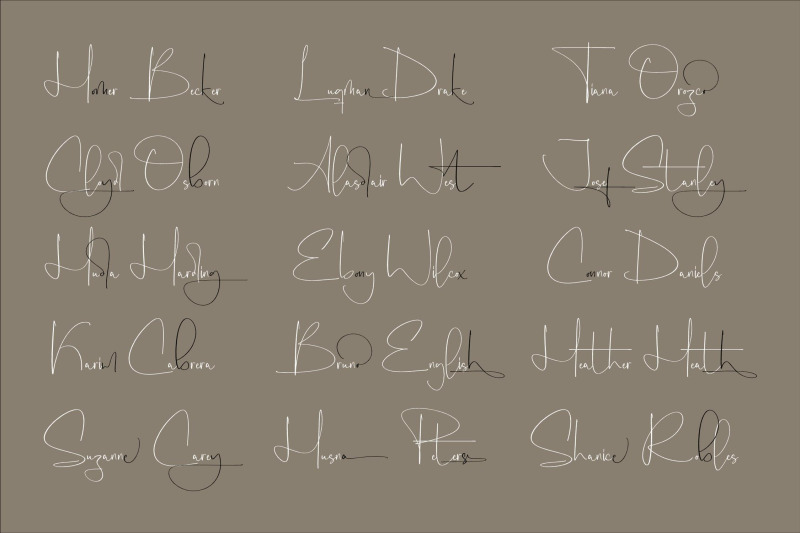 Homer Becker Luqman Drake Tiana Orozco
Clayd Osborn Alasdair West Josef Stanley
Huda Harding Ebony Wilcox Connor Daniels
Karim Cabrera Bruno English Heather Heath
Suzanne Carey Husna Peters Shanice Robles